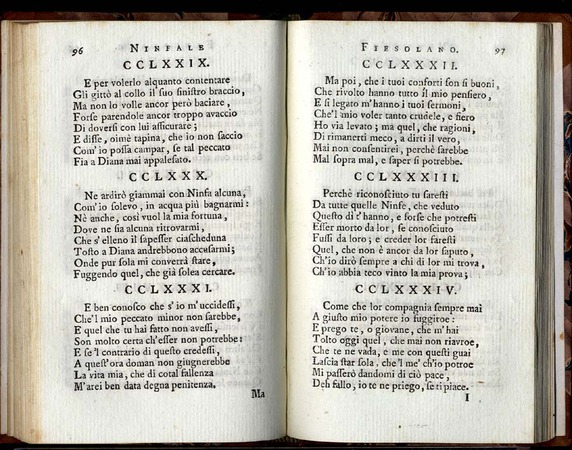 96 NINFALE
CCLXXIX.
E per volerlo alquanto contentare
Gli gittò al collo il suo sinistro braccio,
Ma non lo volle ancor però baciare,
Forse parendole ancor troppo avaccio
Di doversi con lui assicurare;
E disse, oimè tapina, che io non saccio
Com'io possa campar, se tal peccato
Fia a Diana mai appalesato.
CCLXXX.
Ne ardirò giammai con Ninfa alcuna,
Com'io solevo, in acqua più bagnarmi:
Nè anche, così vuol la mia fortuna,
Dove ne sia alcuna ritrovarmi,
Che s'elleno il sapesser ciascheduna
Tosto a Diana andrebbono accusarmi;
Onde pur sola mi converrà stare,
Fuggendo quel, che già solea cercare.
CCLXXXI.
E ben conosco che s'io m'uccidessi,
Che'l mio peccato minor non sarebbe,
E quel che tu hai fatto non avessi,
Son molto certa ch'esser non potrebbe:
E se'l contrario di questo credessi,
A quest'ora doman non giugnerebbe
La vita mia, che di cotal fallenza
M'arei ben data degna penitenza.
Ma
FIESOLANO. 97
CCLXXXII.
Ma poi, che i tuoi conforti son sì buoni,
Che rivolto hanno tutto il mio pensiero,
E sì legato m'hanno i tuoi sermoni,
Che'l mio voler tanto crudele, e fiero
Ho via levato; ma quel, che ragioni,
Di rimanerti meco, a dirti il vero,
Mai non consentirei, perchè sarebbe
Mal sopra mal, e saper si potrebbe.
CCLXXXIII.
Perchè riconosciuto tu saresti
Da tutte quelle Ninfe, che veduto
Questo dì t'hanno, e forse che potresti
Esser morto da lor, se conosciuto
Fussi da loro; e creder lor faresti
Quel, che non è ancor da lor saputo,
Ch'io dirò sempre a chi di lor mi trova,
Ch'io abbia teco vinto la mia prova;
CCLXXXIV.
Come che lor compagnia sempre mai
A giusto mio potere io fuggiroe:
E prego te, o giovane, che m'hai
Tolto oggi quel, che mai non riavroe,
Che te ne vada, e me con questi guai
Lascia star sola, che'l me' ch'io potroe
Mi passerò dandomi di ciò pace,
Deh fallo, io te ne priego, se ti piace.
I